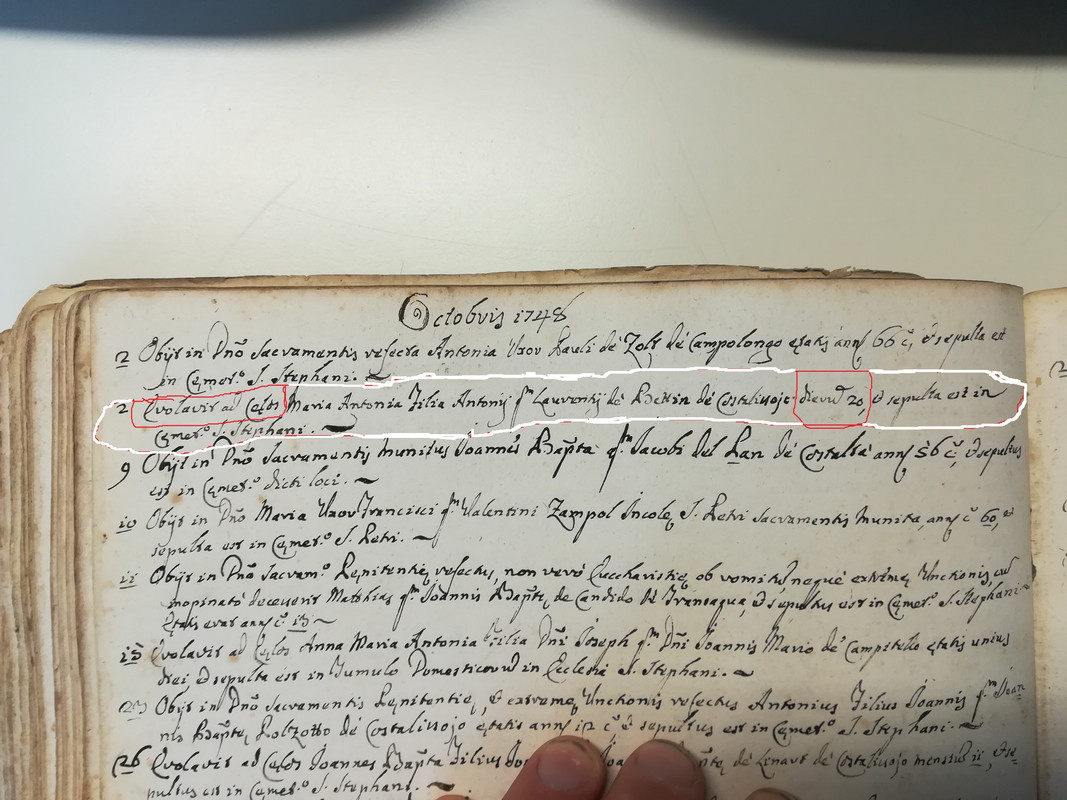 Octobris 1748
2 Obijt in Dnõ Sacramentis refecta Antonia Uxor Pauli de Zolt de Campolongo ętatis anñ 66 c.ᵃ, et sepulta est
in Cęmet.º S. Stephani.
2 Evolavit ad Cęlos Maria Antonia Filia Antonij q.m Laurentij de Bettin de Costalissojo dierũ 20, et sepulta est in
Cęmet.º S. Stephani.
9 Obijt in Dnõ Sacramentis munitus Joannes Bapta q.m Jacobi del Fan de Costalta anñ 56 c.ᵃ, et sepultus
est in Cęmet.º dicti loci.
10 Obijt in Dnõ Maria Uxor Francisci q.m Valentini Zampol Incolę S. Petri Sacramentis munita, anñ c.ᵃ 60, et
sepulta est in Cęmet.º S. Petri.
11 Obijt in Dnõ Sacram.º Pęnitentię refectus, non verò Eucharistię, ob vomitũ, neque extremę Unctionis, cũ
inopinatò decesserit Matthias q.m Joannis Baptę de Candido de Transaqua, et sepultus est in Cęmet.º S. Stephani
ętatis erat anñ c.ᵃ
15 Evolavit ad Cęlos Anna Maria Antonia Filia Dñi Joseph q.m Dñi Joannis Mario de Campitello ętatis unius
diei, et sepulta est in Tumulo Domesticorũ in Ecclesia S. Stephani.
Obijt in Dnõ Sacramentis Pęnitentię, et extremę Unctionis refectus Antonius Filius Joannis q.m Joan
nis Baptę Polzotto de Costalissojo ętatis anñ 12 c.ᵃ et sepultus est in Cęmet.º S. Stephani.
26 Evolavit ad Cęlos Joannes Bapta Filius de Linaut de Costalissojo mensiũ 11, et se-
pultus est in Cęmet.º S. Stephani.